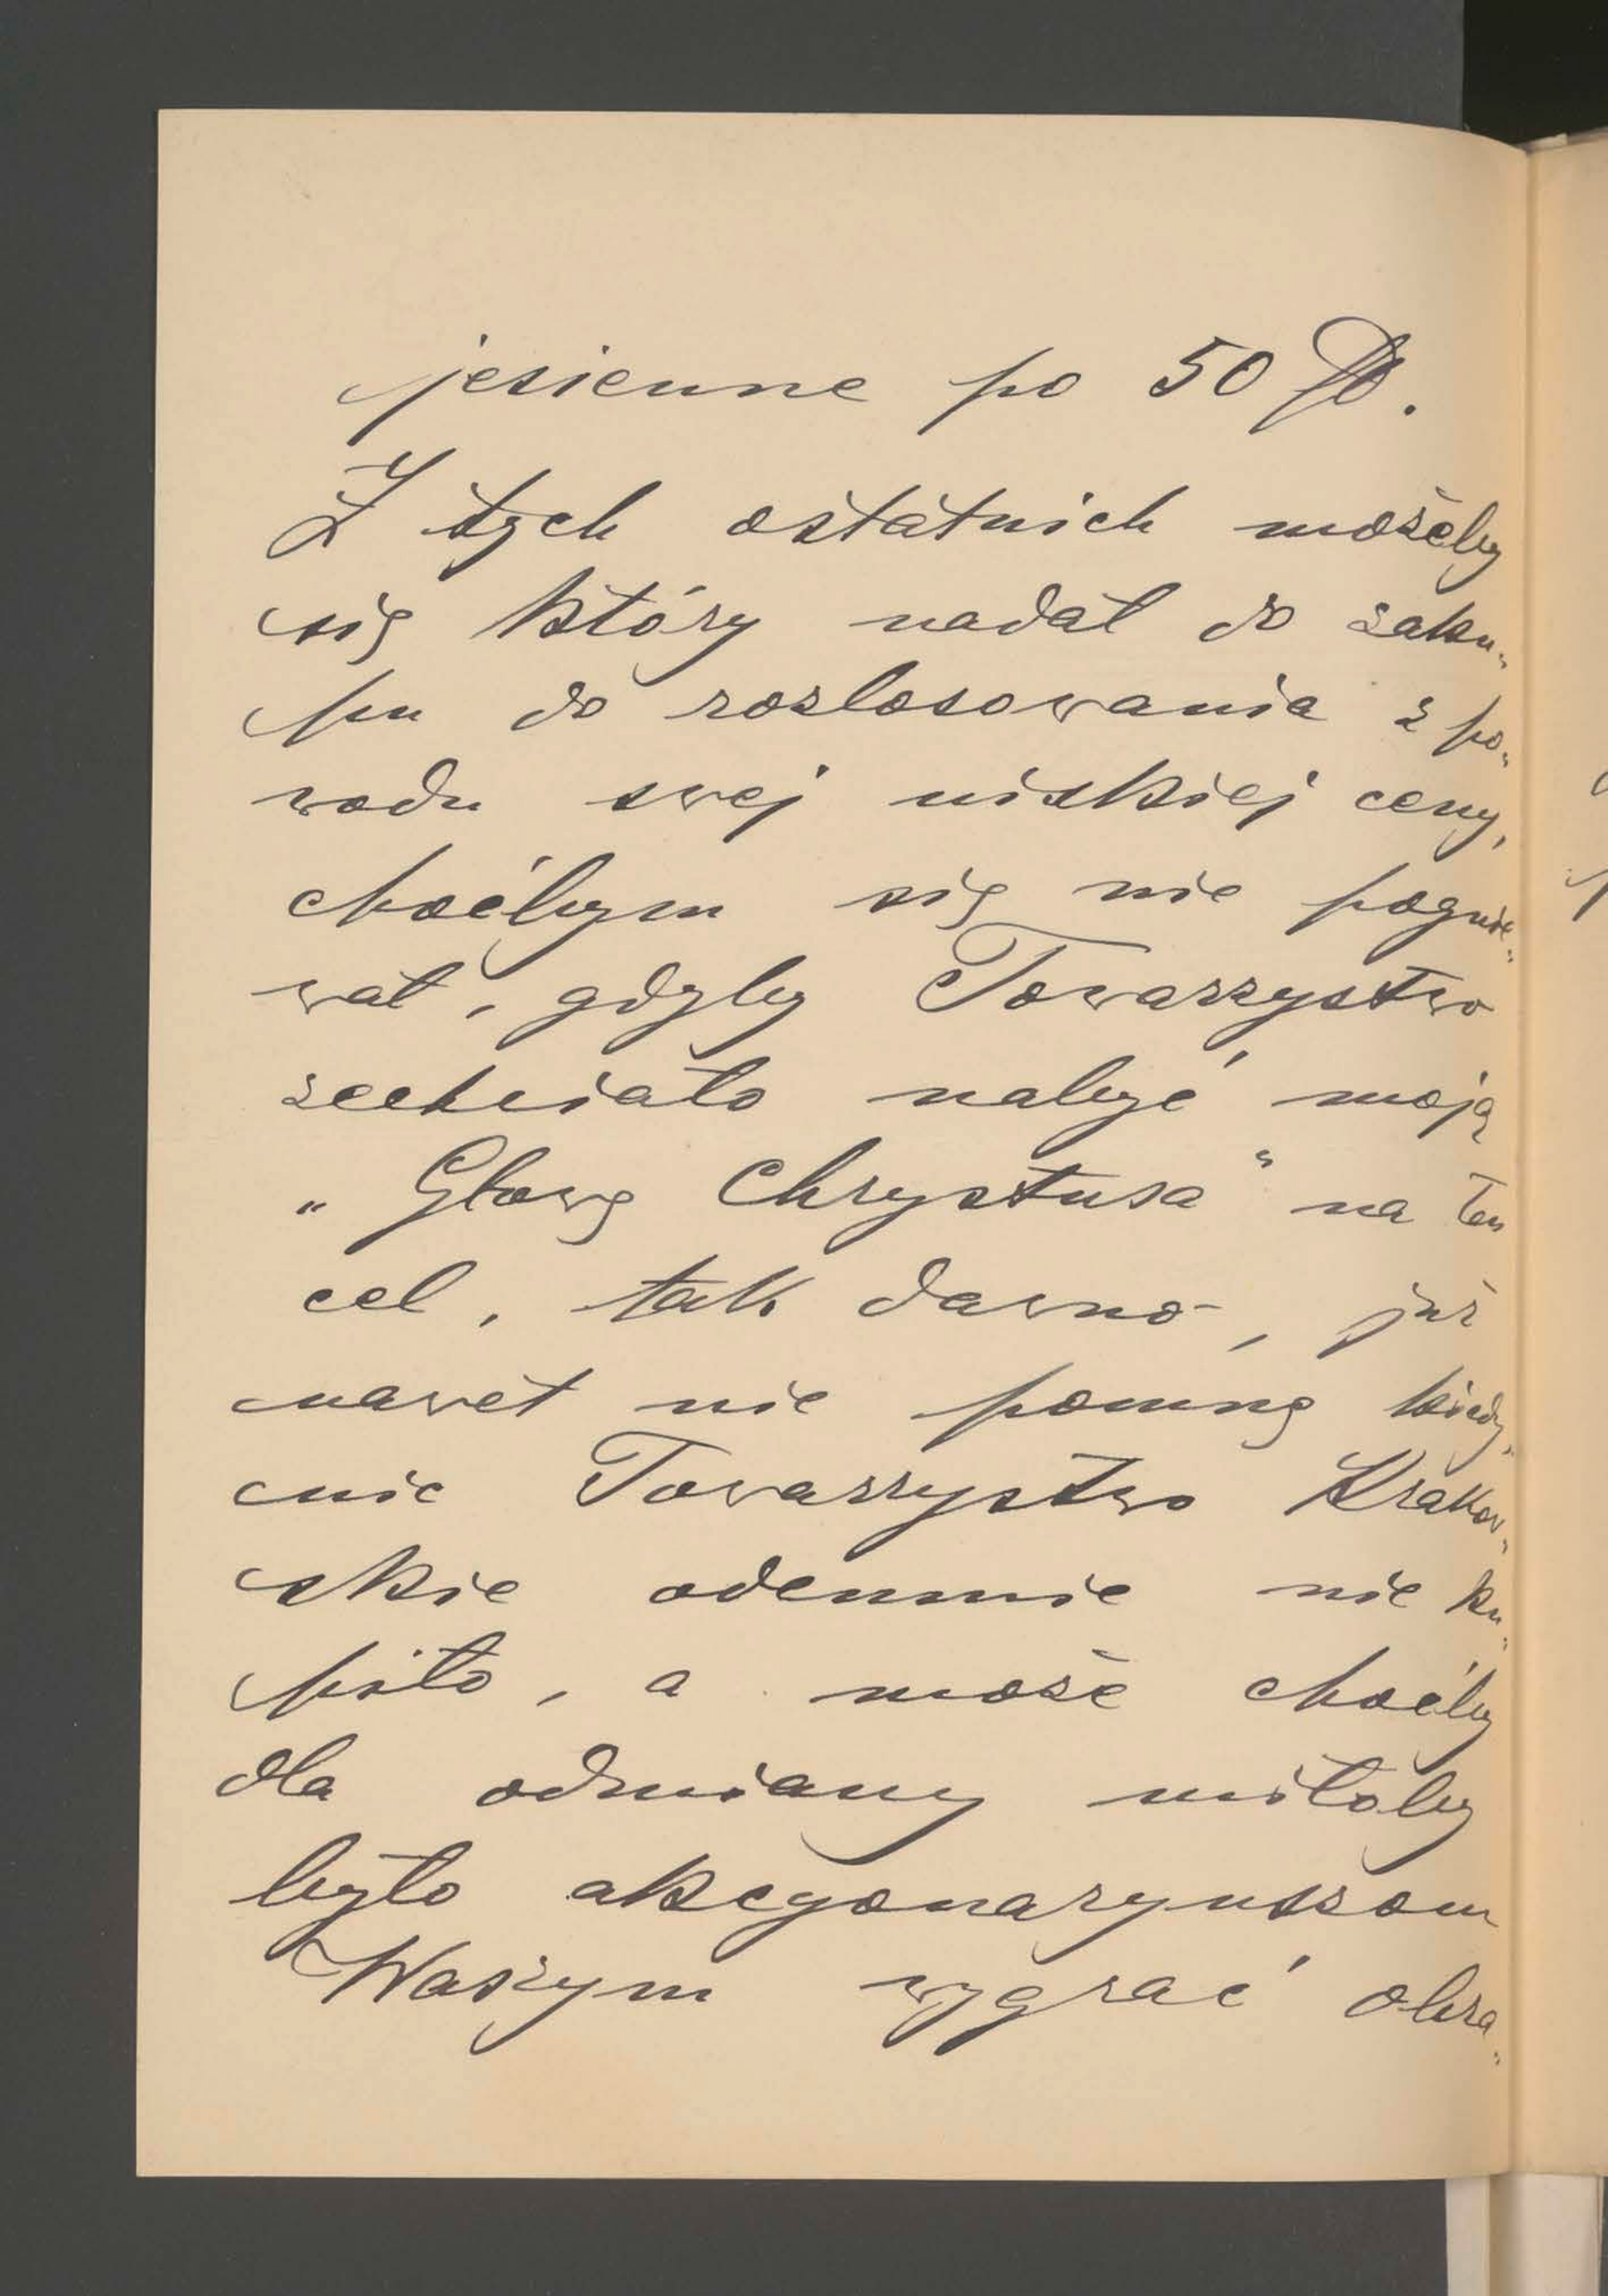 jesienne po 50 fl.
Z tych ostatnich możeby
się który nadał do zaku„
pu do rozlosowania z po„
wodu swej nizkiej ceny,
choćbym się nie pognie„
wał, gdyby Towarzystwo
zechciało nabyć moją
„Głowę Chrystusa" na ten
cel, tak dawno, już
nawet nie pomnę kiedy,
nic Towarzystwo Krakow„
skie odemnie nie ku„
piło, a może choćby
dla odmiany miłoby
było akcyonaryuszom
Waszym wygrać obra„